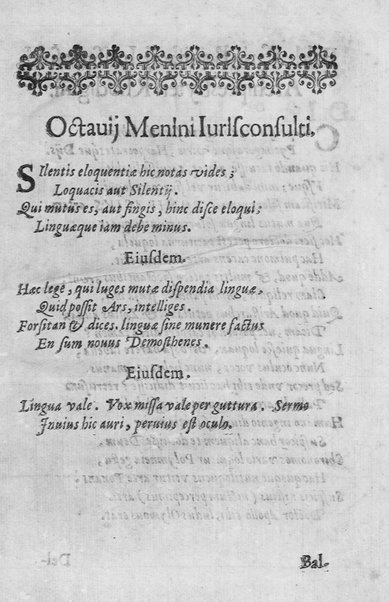 Octauij Menini Iurisconsulti.
Silentis eloquentiæ hic notas vides;
Loquacis aut Silentij.
Qui mutus es, aut fingis, hinc disce eloqui;
Linguæque iam debe minus.
Eiusdem.
Hæc lege, qui luges mutæ dispendia linguæ,
Quid possit Ars, intelliges.
Forsitan & dices, linguæ sine munere factus
En sum nouus Demosthenes.
Eiusdem.
Lingua vale. Vox missa vale per guttura. Sermo
Inuius hic auri, peruius est oculo.
Bal-